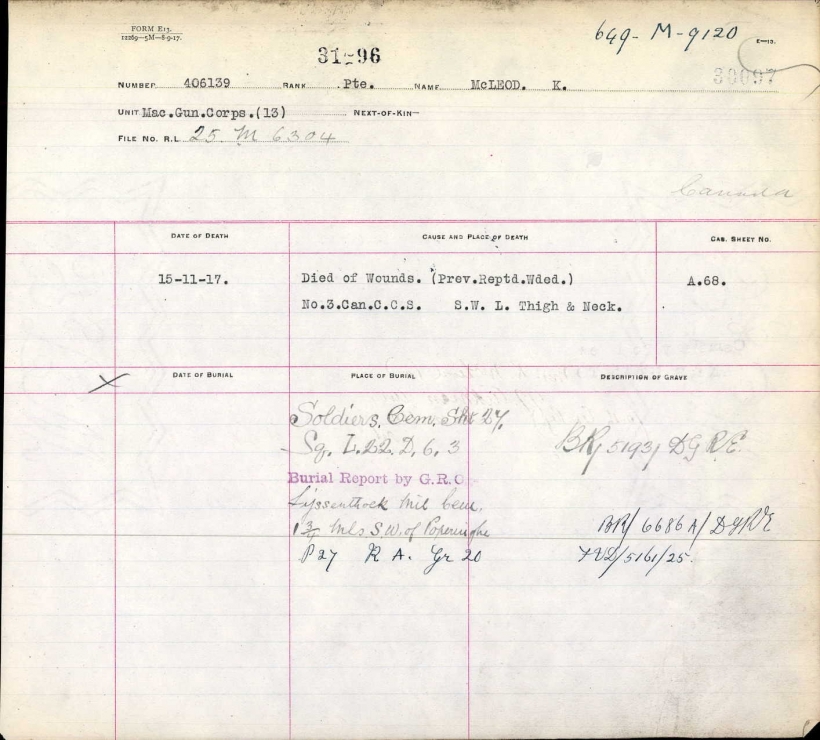 FORM E17.
12269—5M—8-9-17.
649- M-9120
E—13.
31-96
30097
NUMBER 406139 RANK Pte. NAME McLEOD. K.
UNIT Mac.Gun.Corps.(13) NEXT-OF-KIN—
FILE NO. R.L. 25. M 6304
Canada
DATE OF DEATH CAUSE AND PLACE OF DEATH CAS. SHEET NO.
15-11-17. Died of Wounds. (Prev.Reptd.Wded.) A.68.
No.3.Can.C.C.S. S.W. L. Thigh & Neck.
X DATE OF BURIAL PLACE OF BURIAL DESCRIPTION OF GRAVE
Soldiers. Cem. Sht 27.
Sq. L.22.D. 6. 3 BR/ 5193/ D G R E.
Burial Report by G.R.O.
Lyssenthock Mil Cem.
1 3/4 Mls S.W. of Poperinghe BR/ 6686 A/ DGRE
P 27 R A. Gr 20 /5161/25.